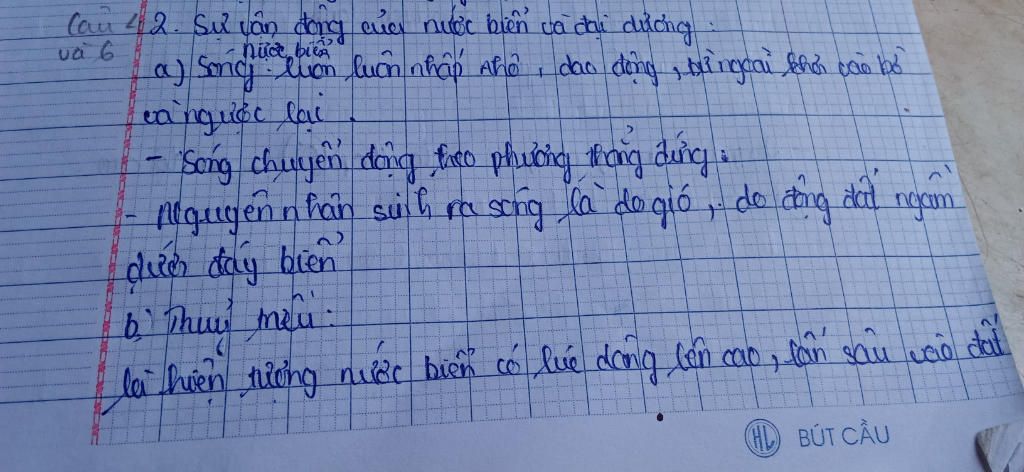 Câu 4
và 6
2. Sự vận động của nước biển và đại dương:
nước biển
a) Sóng: luôn luôn nhấp nhô, dao động, từ ngoài khơi vào bờ
và ngược lại.
- Sóng chuyển động theo phương thẳng đứng.
- Nguyên nhân sinh ra sóng là do gió, do động đất ngầm
dưới đáy biển
b) Thuỷ triều:
là hiện tượng nước biển có lúc dâng lên cao, lấn sâu vào đất
HL BÚT CẦU